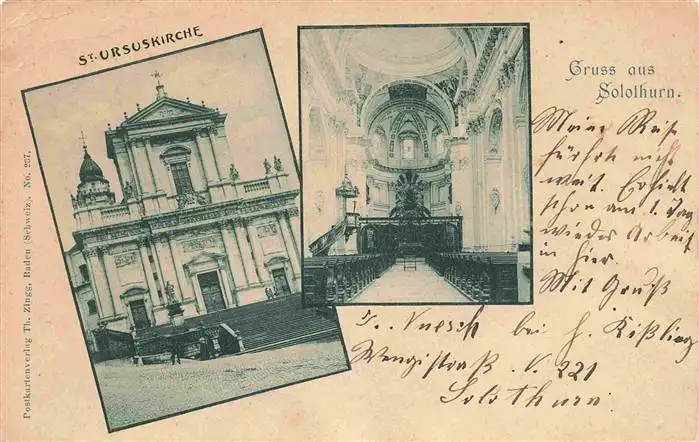 ST. URSUSKIRCHE
Gruss aus
Solothurn.
Meine Reise
führt nicht
weit. Erhielt
schon am 1. Tag
wieder Arbeit
in hier.
Mit Gruß
bei H. Kißling
Wengistraß. N. 221
Solothurn.
Postkartenverlag Th. Zingg, Baden (Schweiz), No. 237.